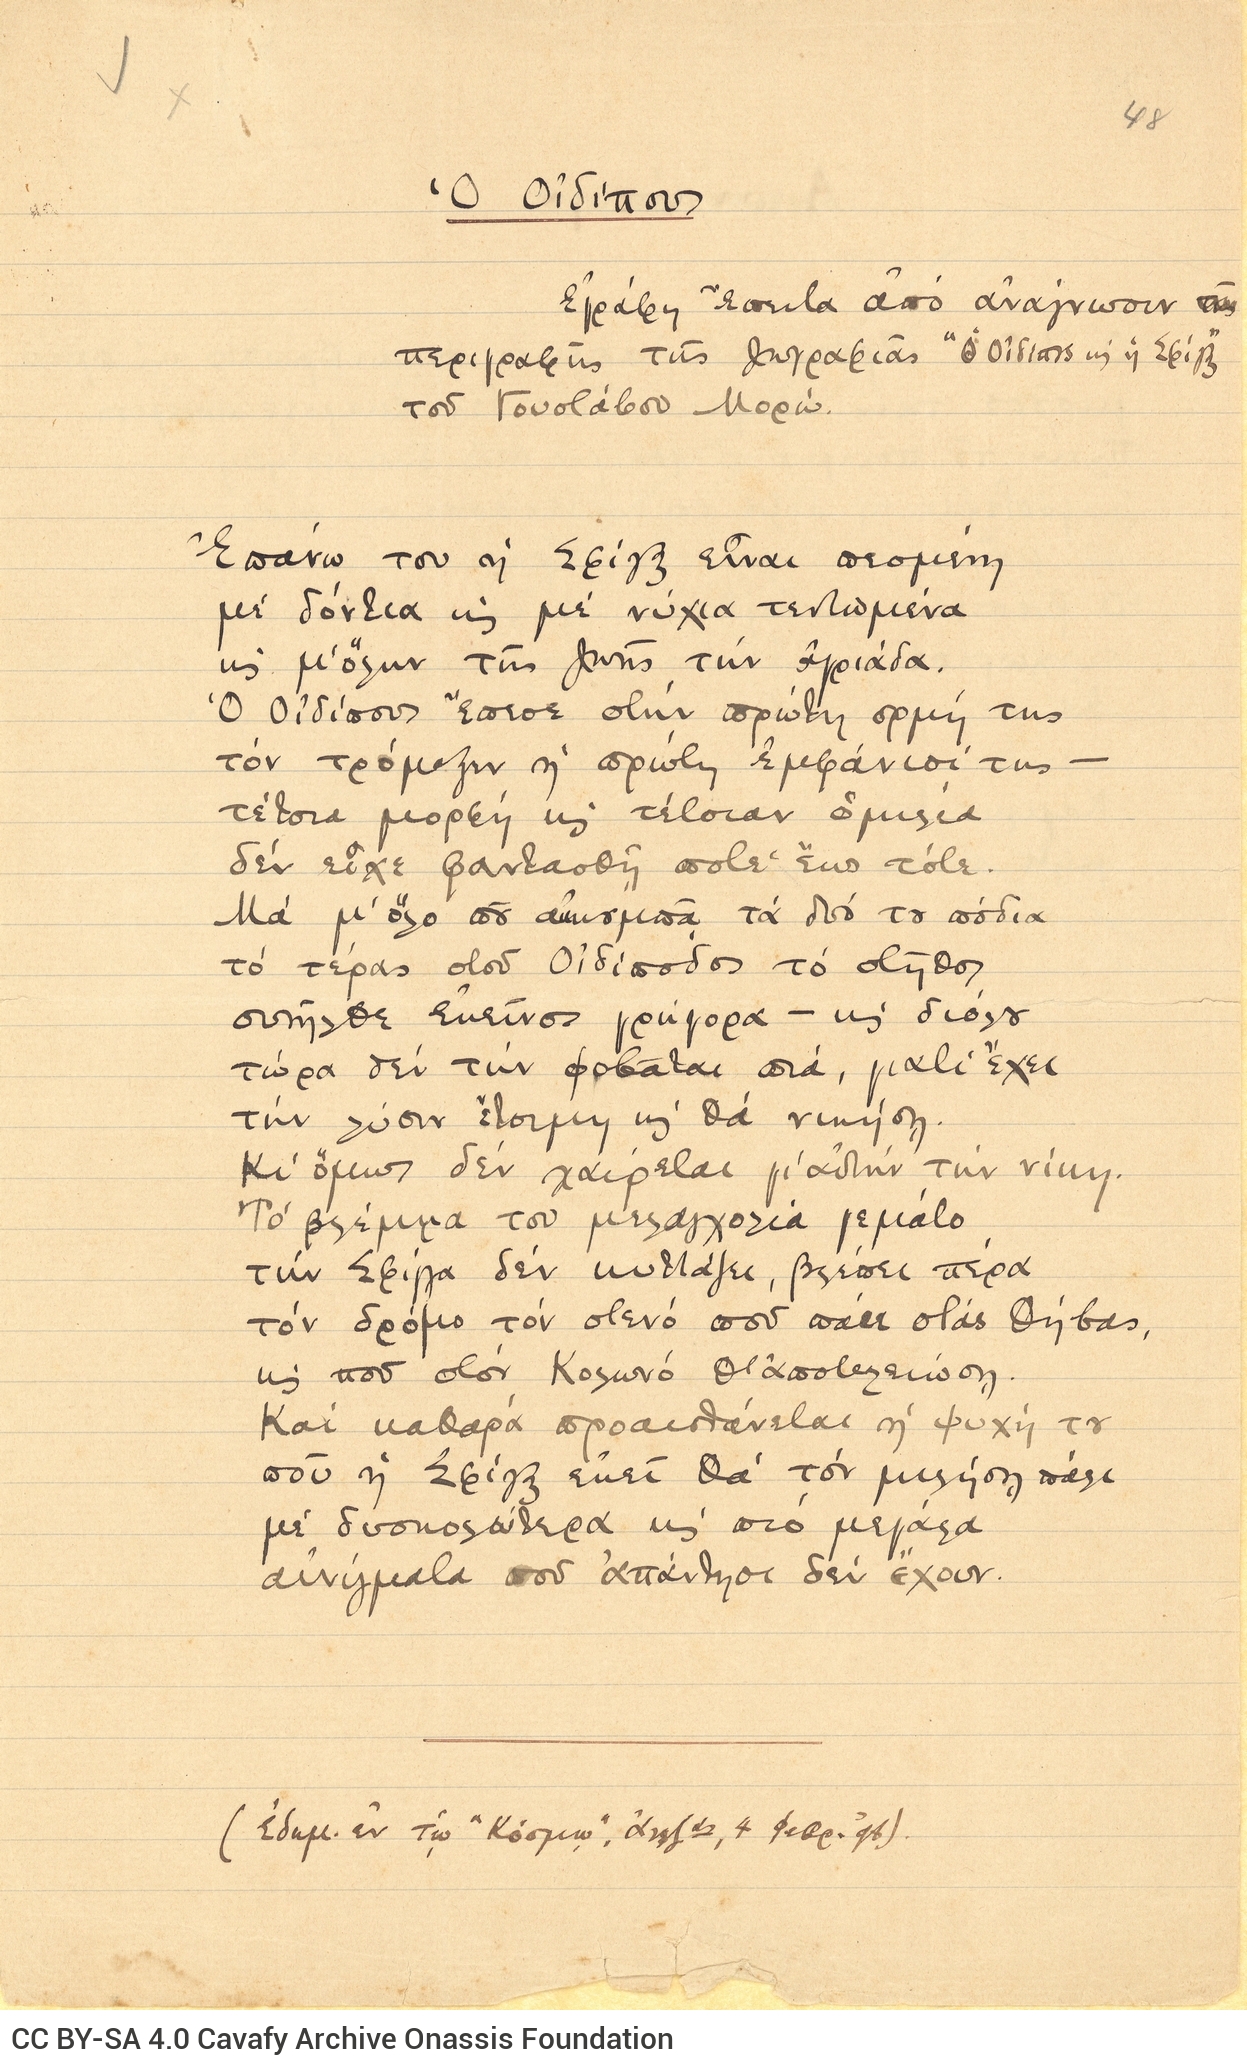 48
Ὁ Οἰδίπους
Ἐγράφη ἔπειτα ἀπό ἀνάγνωσιν τῆς
περιγραφῆς τῆς ζωγραφιᾶς "Ὁ Οἰδίπους κ̀ ἡ Σφίγξ"
τοῦ Γουστάβου Μορώ.
Ἐπάνω του ἡ Σφίγξ εἶναι πεσμένη
μέ δόντια κ̀ μέ νύχια τεντωμένα
κ̀ μ' ὅλην τῆς ζωῆς τήν ἀγριάδα.
Ὁ Οἰδίπους ἔπεσε στήν πρώτη ορμή της
τόν τρόμαξεν ἡ πρώτη ἐμφάνισί της —
τέτοια μορφή κ̀ τέτοιαν ὁμιλία
δέν εἶχε φαντασθῆ ποτέ ἕως τότε.
Μά μ' ὅλο πȣ ἀκκȣμπᾶ τά δυό τȣ πόδια
τό τέρας στοῦ Οἰδίποδος τό στῆθος
συνῆλθε ἐκεῖνος γρήγορα — κ̀ διόλȣ
τώρα δέν τήν φοβᾶται πιά, γιατί ἔχει
τήν λύσιν ἕτοιμη κ̀ θά νικήσῃ.
Κι' ὅμως δέν χαίρεται γι' αὐτήν τήν νίκη.
Τό βλέμμα του μελαγχολία γεμάτο
τήν Σφίγγα δέν κυττάζει, βλέπει πέρα
τόν δρόμο τόν στενό πού πάει στάς Θήβας,
κ̀ πού στόν Κολωνό θ' ἀποτελειώσῃ.
Καί καθαρά προαισθάνεται ἡ ψυχή τȣ
πού ἡ Σφίγξ ἐκεῖ θά τόν μιλήσῃ πάλι
μέ δυσκολώτερα κ̀ πιό μεγάλα
αἰνίγματα πού ἀπάντησι δέν ἔχουν.
(ἐδημ. ἐν τῷ "Κόσμῳ", 4 Φεβρ.